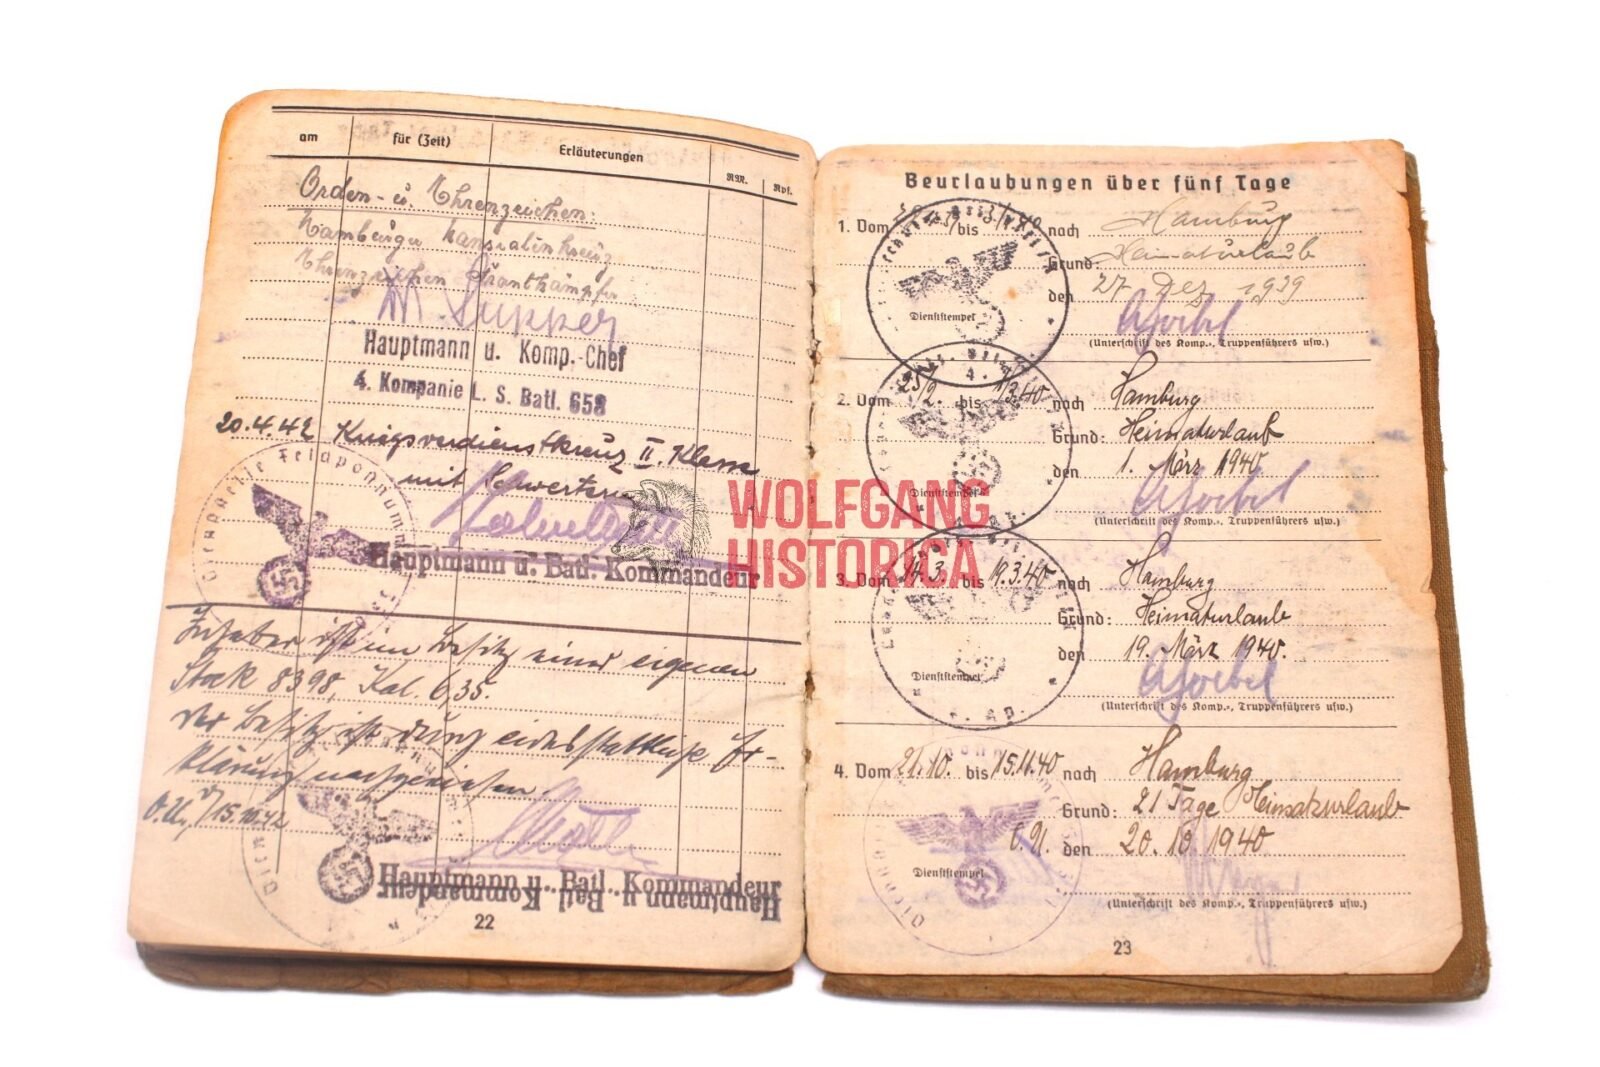 am für (Zeit) Erläuterungen RM. Rpf.
Orden- u. Ehrenzeichen:
Hamburger Hanseatenkreuz
Ehrenzeichen Frontkämpfer
Hauptmann u. Komp.-Chef
4. Kompanie L. S. Batl. 658
20.4.42 Kriegsverdienstkreuz II. Klasse
mit Schwertern
Dienststelle Feldpostnummer
Hauptmann u. Batl. Kommandeur
Inhaber ist im Besitz einer eigenen
Stock 8398, Kal. 6,35.
Der Besitz ist durch eidesstattliche Er-
klärung nachgewiesen.
O.U., 15.10.42
Hauptmann u. Batl. Kommandeur
Hauptmann u. Batl. Kommandeur
22
WOLFGANG
HISTORICA
Beurlaubungen über fünf Tage
1. Vom bis nach Hamburg
Grund: Heimaturlaub
den 27 Dez 1939
Dienststempel
(Unterschrift des Komp.-, Truppenführers usw.)
2. Vom 25/2. bis 1/3.40 nach Hamburg
Grund: Heimaturlaub
den 1. März 1940
Dienststempel
(Unterschrift des Komp.-, Truppenführers usw.)
3. Vom 14.3. bis 19.3.40 nach Hamburg
Grund: Heimaturlaub
den 19. März 1940.
Dienststempel
(Unterschrift des Komp.-, Truppenführers usw.)
4. Vom 21.10. bis 15.11.40 nach Hamburg
Grund: 21 Tage Heimaturlaub
O.U. den 20.10.1940
Dienststempel
(Unterschrift des Komp.-, Truppenführers usw.)
23